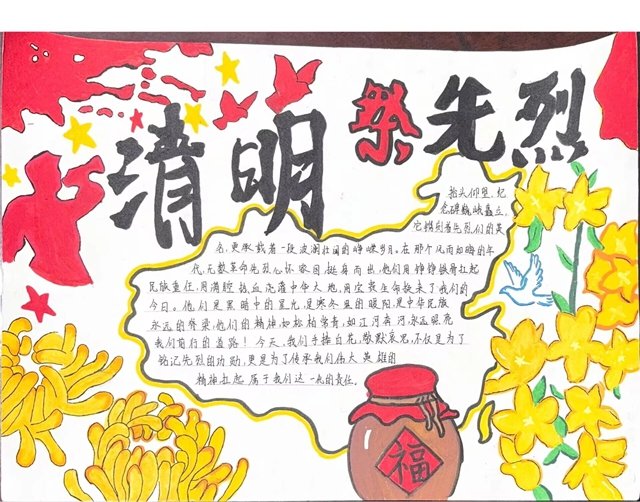 清明祭先烈
抬头仰望,纪
念碑巍峨矗立,
它镌刻着先烈们的英
名,更承载着一段波澜壮阔的峥嵘岁月。在那个风雨如晦的年
代,无数革命先烈心怀家国挺身而出,他们用铮铮铁骨扛起
民族重任,用满腔热血浇灌中华大地,用宝贵生命换来了我们的
今日。他们是黑暗中的星光,是寒冬里的暖阳,是中华民族
永远的脊梁,他们的精神,如松柏常青,如江河奔涌,永远照亮
我们前行的道路!今天,我们手捧白花,默默哀思,不仅是为了
铭记先烈的功勋,更是为了传承我们伟大英雄的
精神扛起属于我们这一代的责任。
福